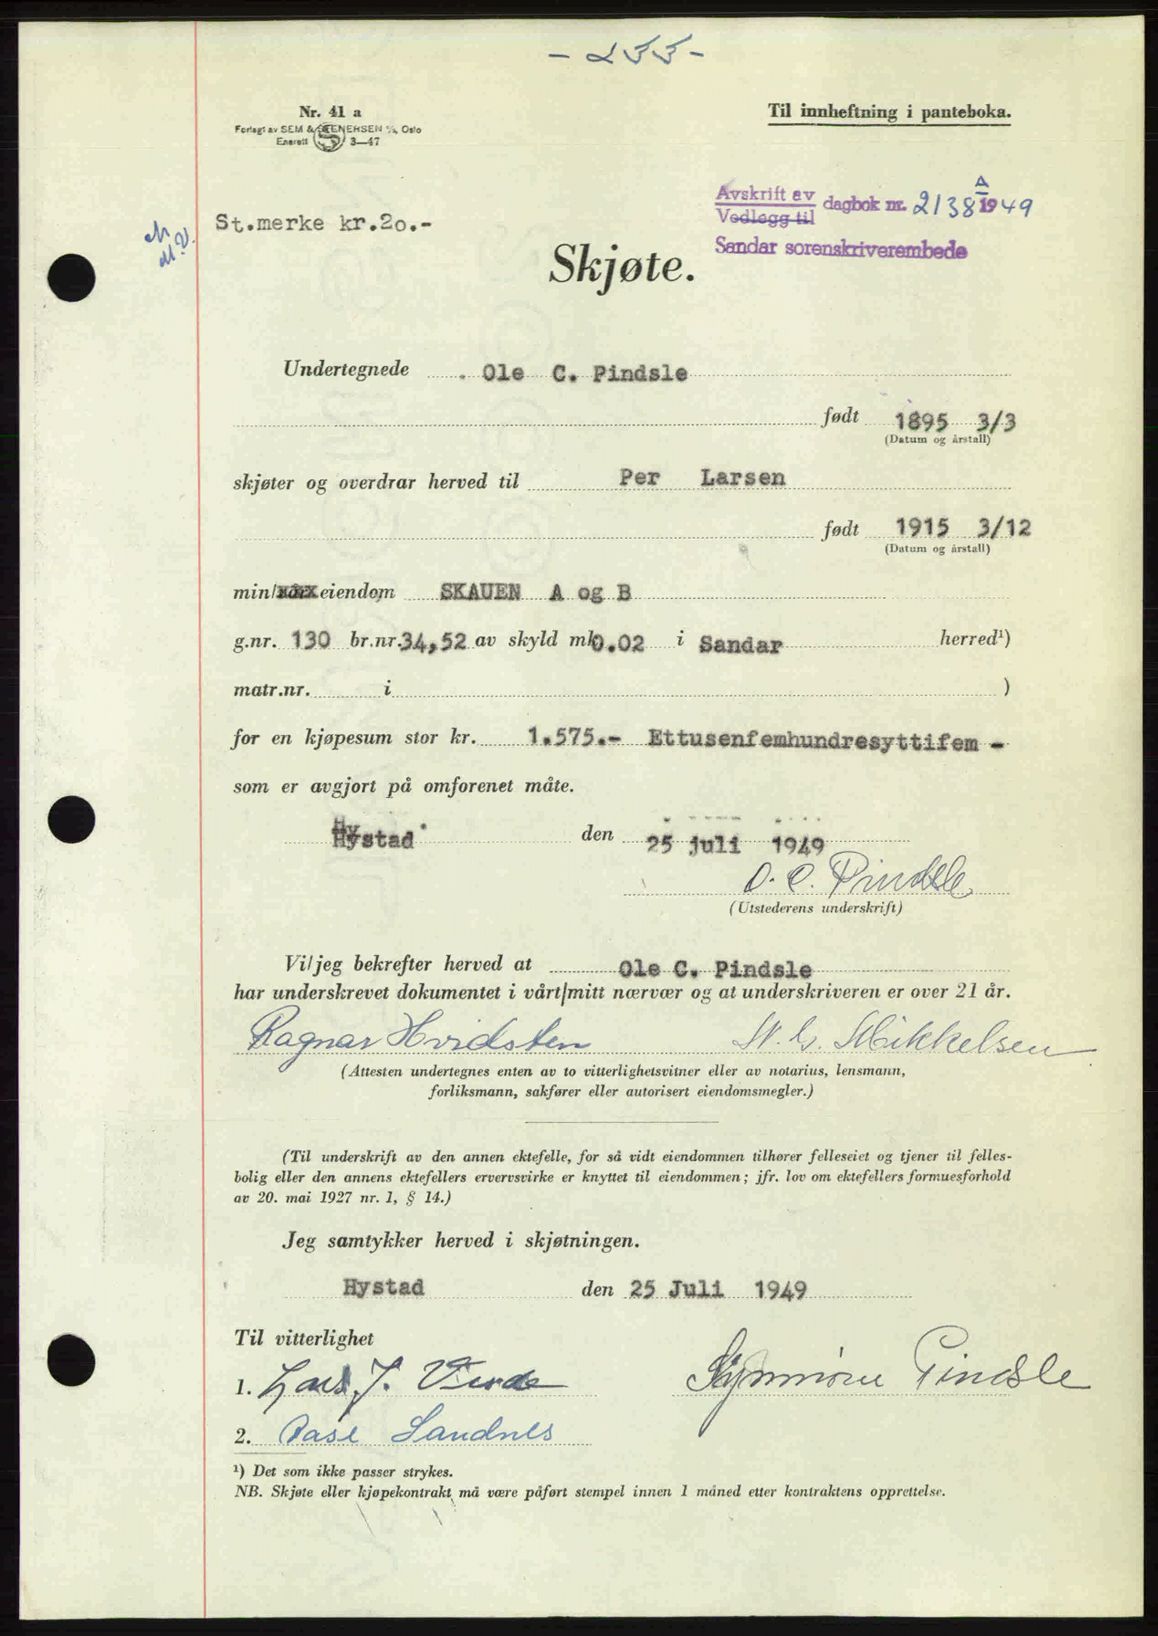 - 233 -
Nr. 41 a
Forlagt av SEM & STENERSEN A/S, Oslo
Enerett 3—47
Til innheftning i panteboka.
St.merke kr.20.-
Avskrift av
Vedlegg til
dagbok nr. 2138 A 1949
Sandar sorenskriverembede
Skjøte.
Undertegnede Ole C. Pindsle
født 1895 3/3
(Datum og årstall)
skjøter og overdrar herved til Per Larsen
født 1915 3/12
(Datum og årstall)
min/xxxx eiendom SKAUEN A og B
g.nr. 130 br.nr. 34,52 av skyld mk 0.02 i Sandar herred¹)
matr.nr. i )
for en kjøpesum stor kr. 1.575.- Ettusenfemhundresyttifem -
som er avgjort på omforenet måte.
Hystad den 25 juli 1949
O. C. Pindsle
(Utstederens underskrift)
Vi/jeg bekrefter herved at Ole C. Pindsle
har underskrevet dokumentet i vårt/mitt nærvær og at underskriveren er over 21 år.
Ragnar Hvidsten Mikkelsen
(Attesten undertegnes enten av to vitterlighetsvitner eller av notarius, lensmann,
forliksmann, sakfører eller autorisert eiendomsmegler.)
(Til underskrift av den annen ektefelle, for så vidt eiendommen tilhører felleseiet og tjener til felles-
bolig eller den annens ektefellers ervervsvirke er knyttet til eiendommen; jfr. lov om ektefellers formuesforhold
av 20. mai 1927 nr. 1, § 14.)
Jeg samtykker herved i skjøtningen.
Hystad den 25 Juli 1949
Til vitterlighet
1. Lars J. Virde Synnøve Pindsle
2. Aase Sandnes
¹) Det som ikke passer strykes.
NB. Skjøte eller kjøpekontrakt må være påført stempel innen 1 måned etter kontraktens opprettelse.